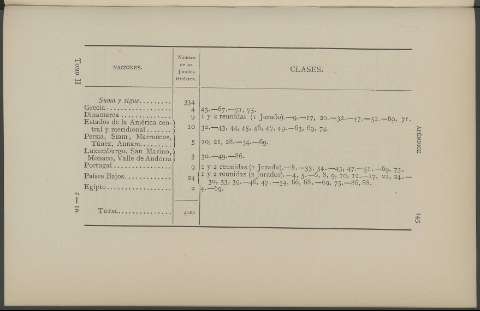 NACIONES.
Número de los Jurados titulares.
CLASES.
Suma y sigue........ 334
Grecia.............. 4 45.—67.—91, 73.
Dinamarca........... 9 1 y 2 reunidas (1 Jurado).—9.—17, 20.—32.—47.—52.—69, 71.
Estados de la América central
y meridional....... 10 30.—43, 44, 45, 46, 47, 49.—63, 69, 74.
Persia, Siam, Marruecos,
Túnez, Annam....... 5 20, 21, 28.—34.—69.
Luxemburgo, San Marino,
Mónaco, Valle de Andorra 3 30.—49.—86.
Portugal............ 9 1 y 2 reunidas (1 Jurado).—8.—33, 34.—43, 47.—52.—69, 73.
Países Bajos........ 24 1 y 2 reunidas (2 Jurados).—4, 5.—6, 8, 9, 10, 12.—17, 21, 24.—
30, 33, 39.—46, 47.—54, 66, 68.—69, 73.—86, 88.
Egipto.............. 2 4.—69.
Total...............
Tomo II
APÉNDICE
145